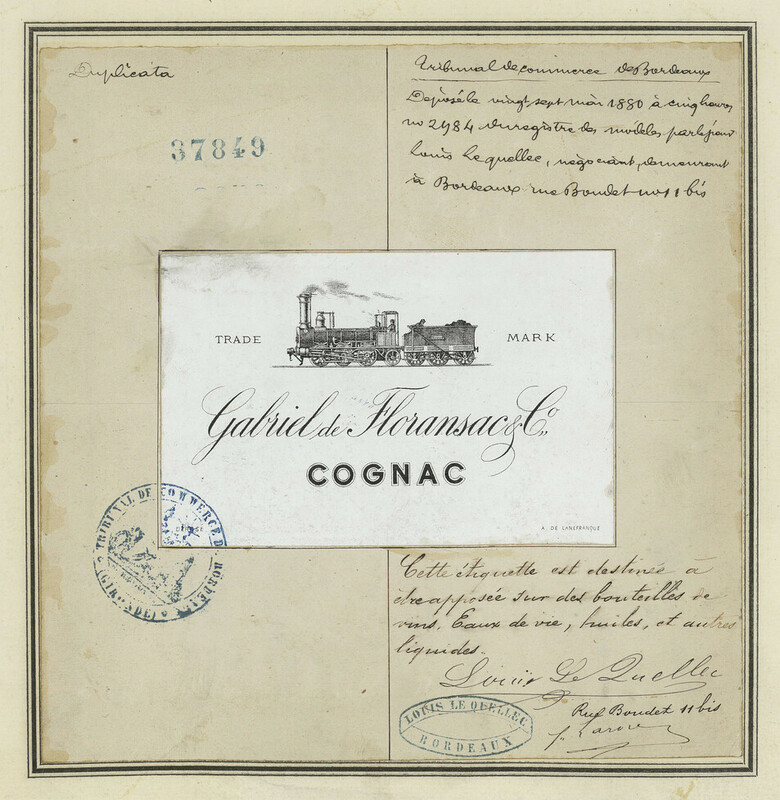 Duplicata
37849
Tribunal de commerce de Bordeaux
Déposé le vingt sept mai 1880 à cinq heures
no 2984 du registre des modèles par le sieur
Louis Le quellec, négociant, demeurant
à Bordeaux rue Boudet no 11 bis
TRADE MARK
Gabriel de Floransac & Co
COGNAC
DÉPOSÉ
A. DE LANEFRANQUE
TRIBUNAL DE COMMERCE DE BORDEAUX
(GIRONDE)
Cette étiquette est destinée à
être apposée sur des bouteilles de
vins. Eaux de vie, huiles, et autres
liquides.
Louis Le Quellec
Rue Boudet 11 bis
LOUIS LE QUELLEC
BORDEAUX